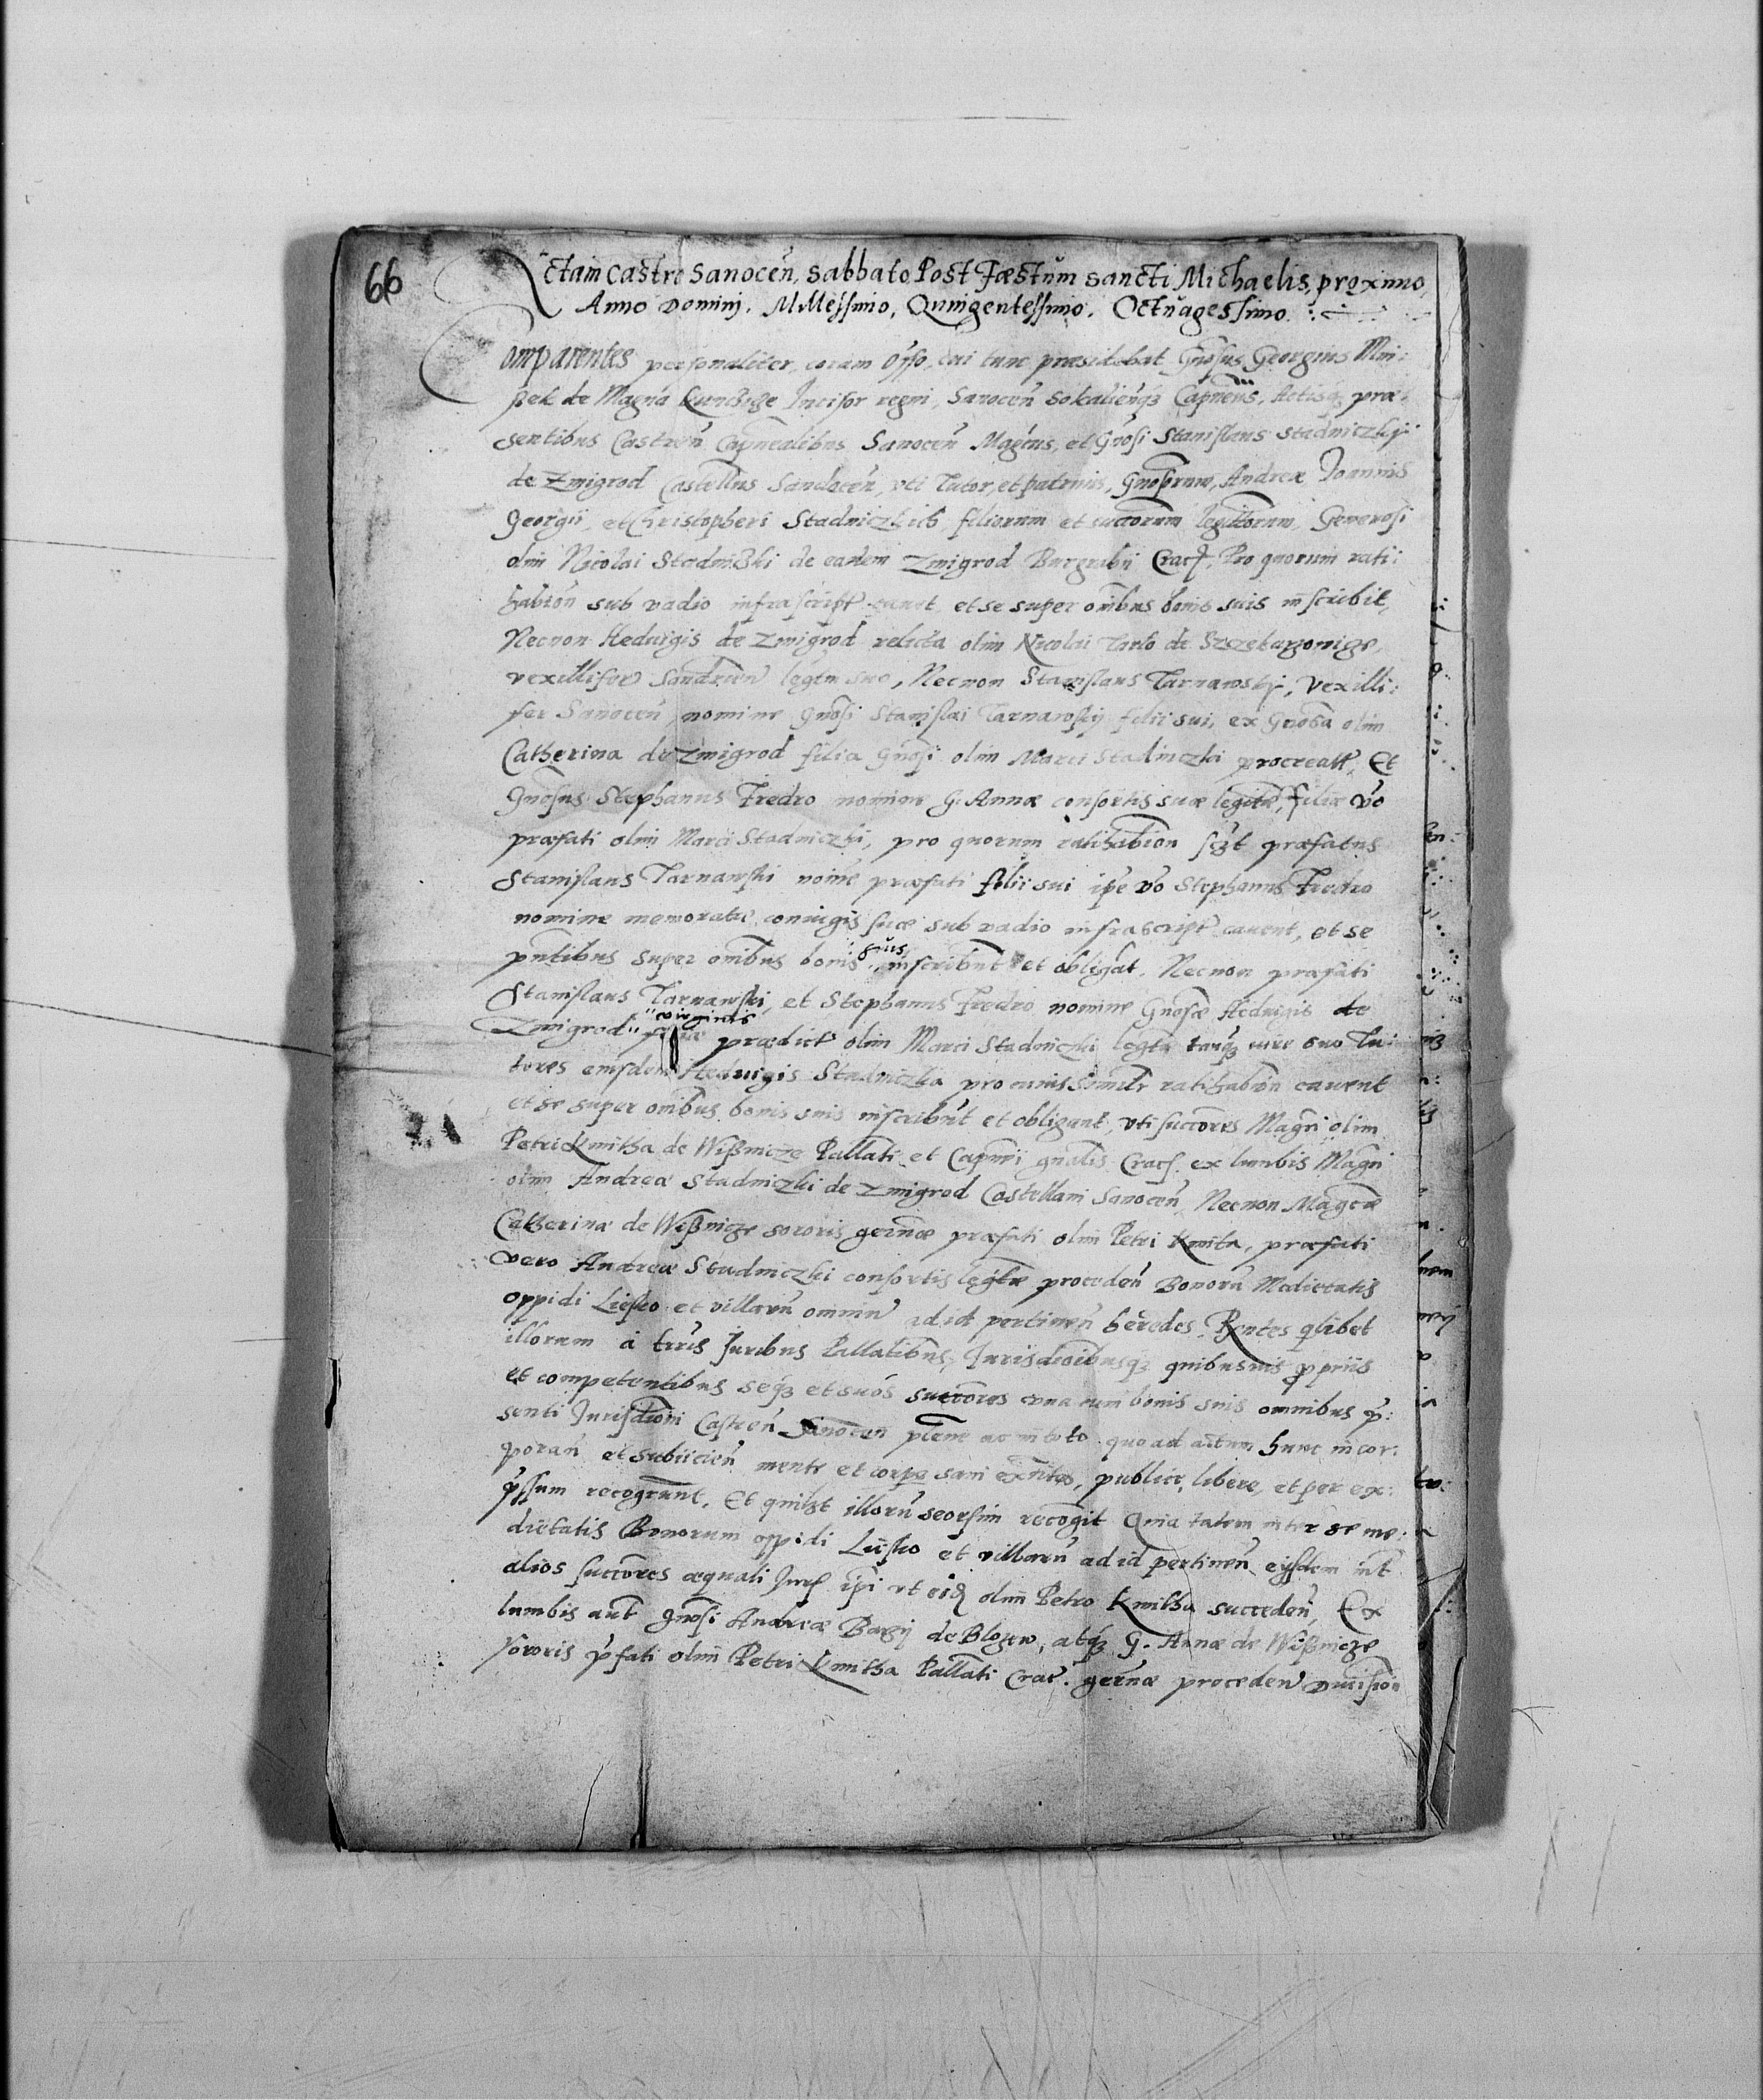 66
Actain castro Sanoceñ, Sabbato Post Fæstum sancti Michaelis, proximo,
Anno Dominj. MMessimo, Quingentessimo. Octuagessimo.
Comparentes personaliter, coram Offo, cui tunc præsidebat Gnosus Georgius Mni:
ßek de Magna Kunczicze Incisor regni, Sanoceñ Sokalieñqȝ Capneus, Actisqȝ præ:
sentibus Castreñ Capnealibus Sanoceñ Magcus, et Gnosi Stanislaus Stadniczkij
de Zmigrod Castellus Sandeceñ, vti Tutor, et patruus, Gnosorum, Andreæ Joannis
Georgii, et Christopheri Stadniczkich filiorum et succorum legittorum, Generosi
olim Nicolai Stadniczki de eadem Zmigrod Burgrabii Crac. Pro quorum rati:
habtoñ sub vadio infrascript cavet, et se super omibus bonis suis inscribit,
Necnon Heduigis de Zmigrod relicta olim Nicolai Tarlo de Szczekarzowicze,
vexilliferi Sandñ legtm suo, Necnon Stanislaus Tarnawskj, Vexilli:
fer Sanoceñ, nomine Gnosi Stanislai Tarnawskij filii sui, ex Gnosa olim
Catherina de Zmigrod filia Gnosi olim Marci Stadniczki procreatt, Et
Gnosus Stephanus Fredro nomine G. Annæ consortis suæ legitæ, filiæ vo
præfati olim Marci Stadniczki, pro quorum ratihabion scȝt præfatus
Stanislaus Tarnawski noie præfati filii sui ipe vo Stephanus Fredro
nomine memoratæ coniugis suæ sub vadio infrascript cavent, et se
pntibus super omibus bonis suis inscribunt et obligat. Necnon præfati
Stanislaus Tarnawski, et Stephanus Fredro nomine Gnosæ Heduigis de
Zmigrod virginis filiæ prædict olim Marci Stadniczki legtæ tanqȝ iure suo Tu:
tores eiusdem Heduigis Stadniczka pro cuius similr ratihabion cavent
et se super omibus bonis suis inscribunt et obligant, vti succores Magci olim
Petri Kmitha de Wißnicze Pallati et Capnei gnalis Crac. ex lumbis Magci
olim Andreæ Stadniczki de Zmigrod Castellani Sanoceñ, Necnon Magcæ
Catherinæ de Wißnicze sororis germæ præfati olim Petri Kmita, præfati
vero Andreæ Stadniczki consortis legtæ procedeñ Bonorū Medietatis
oppidi Liesko et villarū omniū ad id pertineñ heredes, Rentes qlibet
illorum à terris Juribus Pallatibus, Jurisdioibusqȝ quibusuis propriis
et competentibus seqȝ et suos succores cum bonis suis omnibus p̃:
senti Jurisdioni Castreñ Sanoceñ plene ac in toto quo ad actum hunc incor:
porañ et subiicieñ mente et corpe sani exntes, publice, libere, et per ex:
pssum recogrunt, Et quilbt illorū seorsim recogit Quia talem inter se me:
dietatis Bonorum oppidi Liisko et villarū ad id pertineñ eijsdem int
alios succores æquali Jure ipi vt eidȝ olim Petro Kmitha succedeñ, Ex
lumbis aut Gnosi Andreæ Barzij de Blozew, atqȝ G. Annæ de Wißnicze
sororis pfati olim Petri Kmitha Pallati Crac. germæ procedeñ diuision